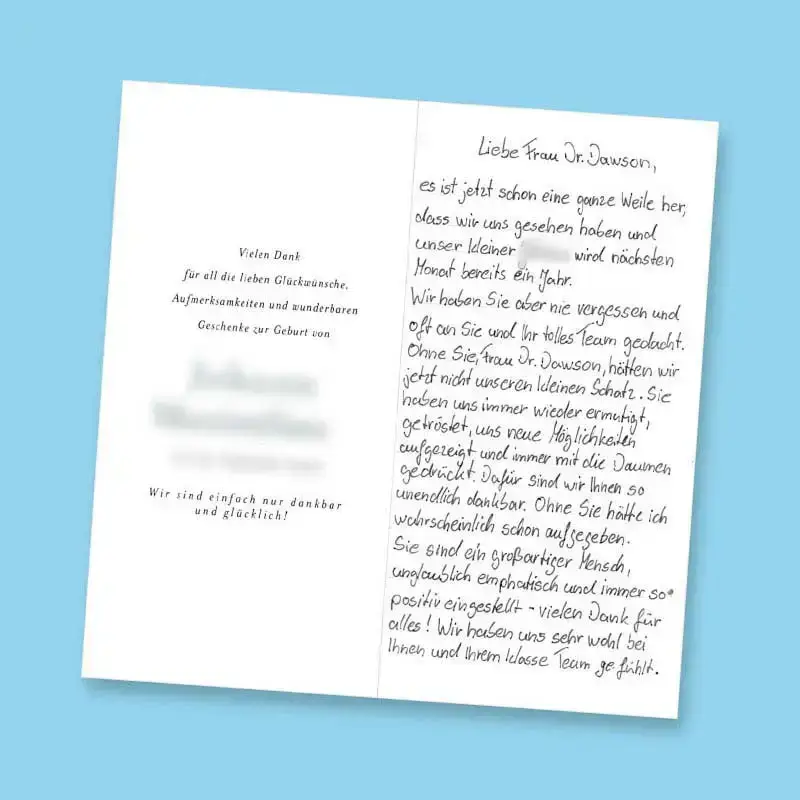 Vielen Dank
für all die lieben Glückwünsche,
Aufmerksamkeiten und wunderbaren
Geschenke zur Geburt von
Wir sind einfach nur dankbar
und glücklich!
Liebe Frau Dr. Dawson,
es ist jetzt schon eine ganze Weile her,
dass wir uns gesehen haben und
unser kleiner wird nächsten
Monat bereits ein Jahr.
Wir haben Sie aber nie vergessen und
oft an Sie und Ihr tolles Team gedacht.
Ohne Sie, Frau Dr. Dawson, hätten wir
jetzt nicht unseren kleinen Schatz. Sie
haben uns immer wieder ermutigt,
getröstet, uns neue Möglichkeiten
aufgezeigt und immer mit die Daumen
gedrückt. Dafür sind wir Ihnen so
unendlich dankbar. Ohne Sie hätte ich
wahrscheinlich schon aufgegeben.
Sie sind ein großartiger Mensch,
unglaublich emphatisch und immer so
positiv eingestellt - vielen Dank für
alles! Wir haben uns sehr wohl bei
Ihnen und Ihrem klasse Team gefühlt.